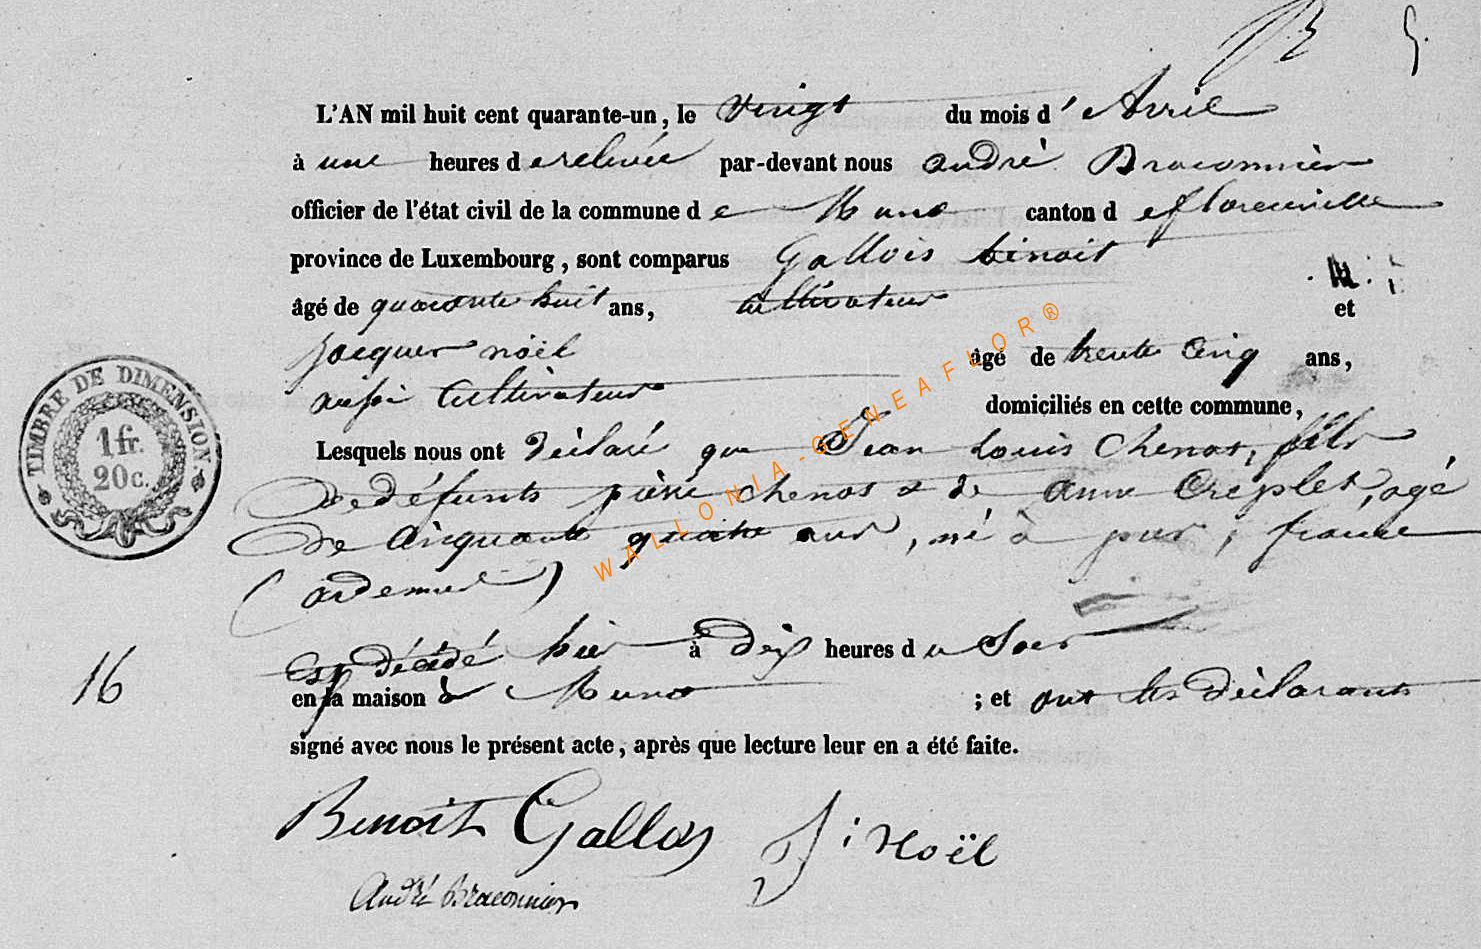 L'AN mil huit cent quarante-un, le vingt du mois d'Avril
à une heures de relevée par-devant nous andré Braconnier
officier de l'état civil de la commune de Muno canton de florenville
province de Luxembourg, sont comparus Gallois binoit
âgé de quarante huit ans, cultivateur et
jacques nöël âgé de trente Cinq ans,
aussi Cultivateur domiciliés en cette commune,
Lesquels nous ont déclaré que Jean Louis Chenot, fils
de défunts pierre chenot & de anne Creplet, agé
de Cinquante quatre ans, né à pur, france
(ardennes)
Est décédé hier à dix heures du Soir
en sa maison à Muno ; et ont les déclarants
signé avec nous le présent acte, après que lecture leur en a été faite.
Benoit Gallois J: Noël
André Braconnier
16
TIMBRE DE DIMENSION.
1 fr.
20 c.
WALLONIA-GENEAFLOR®